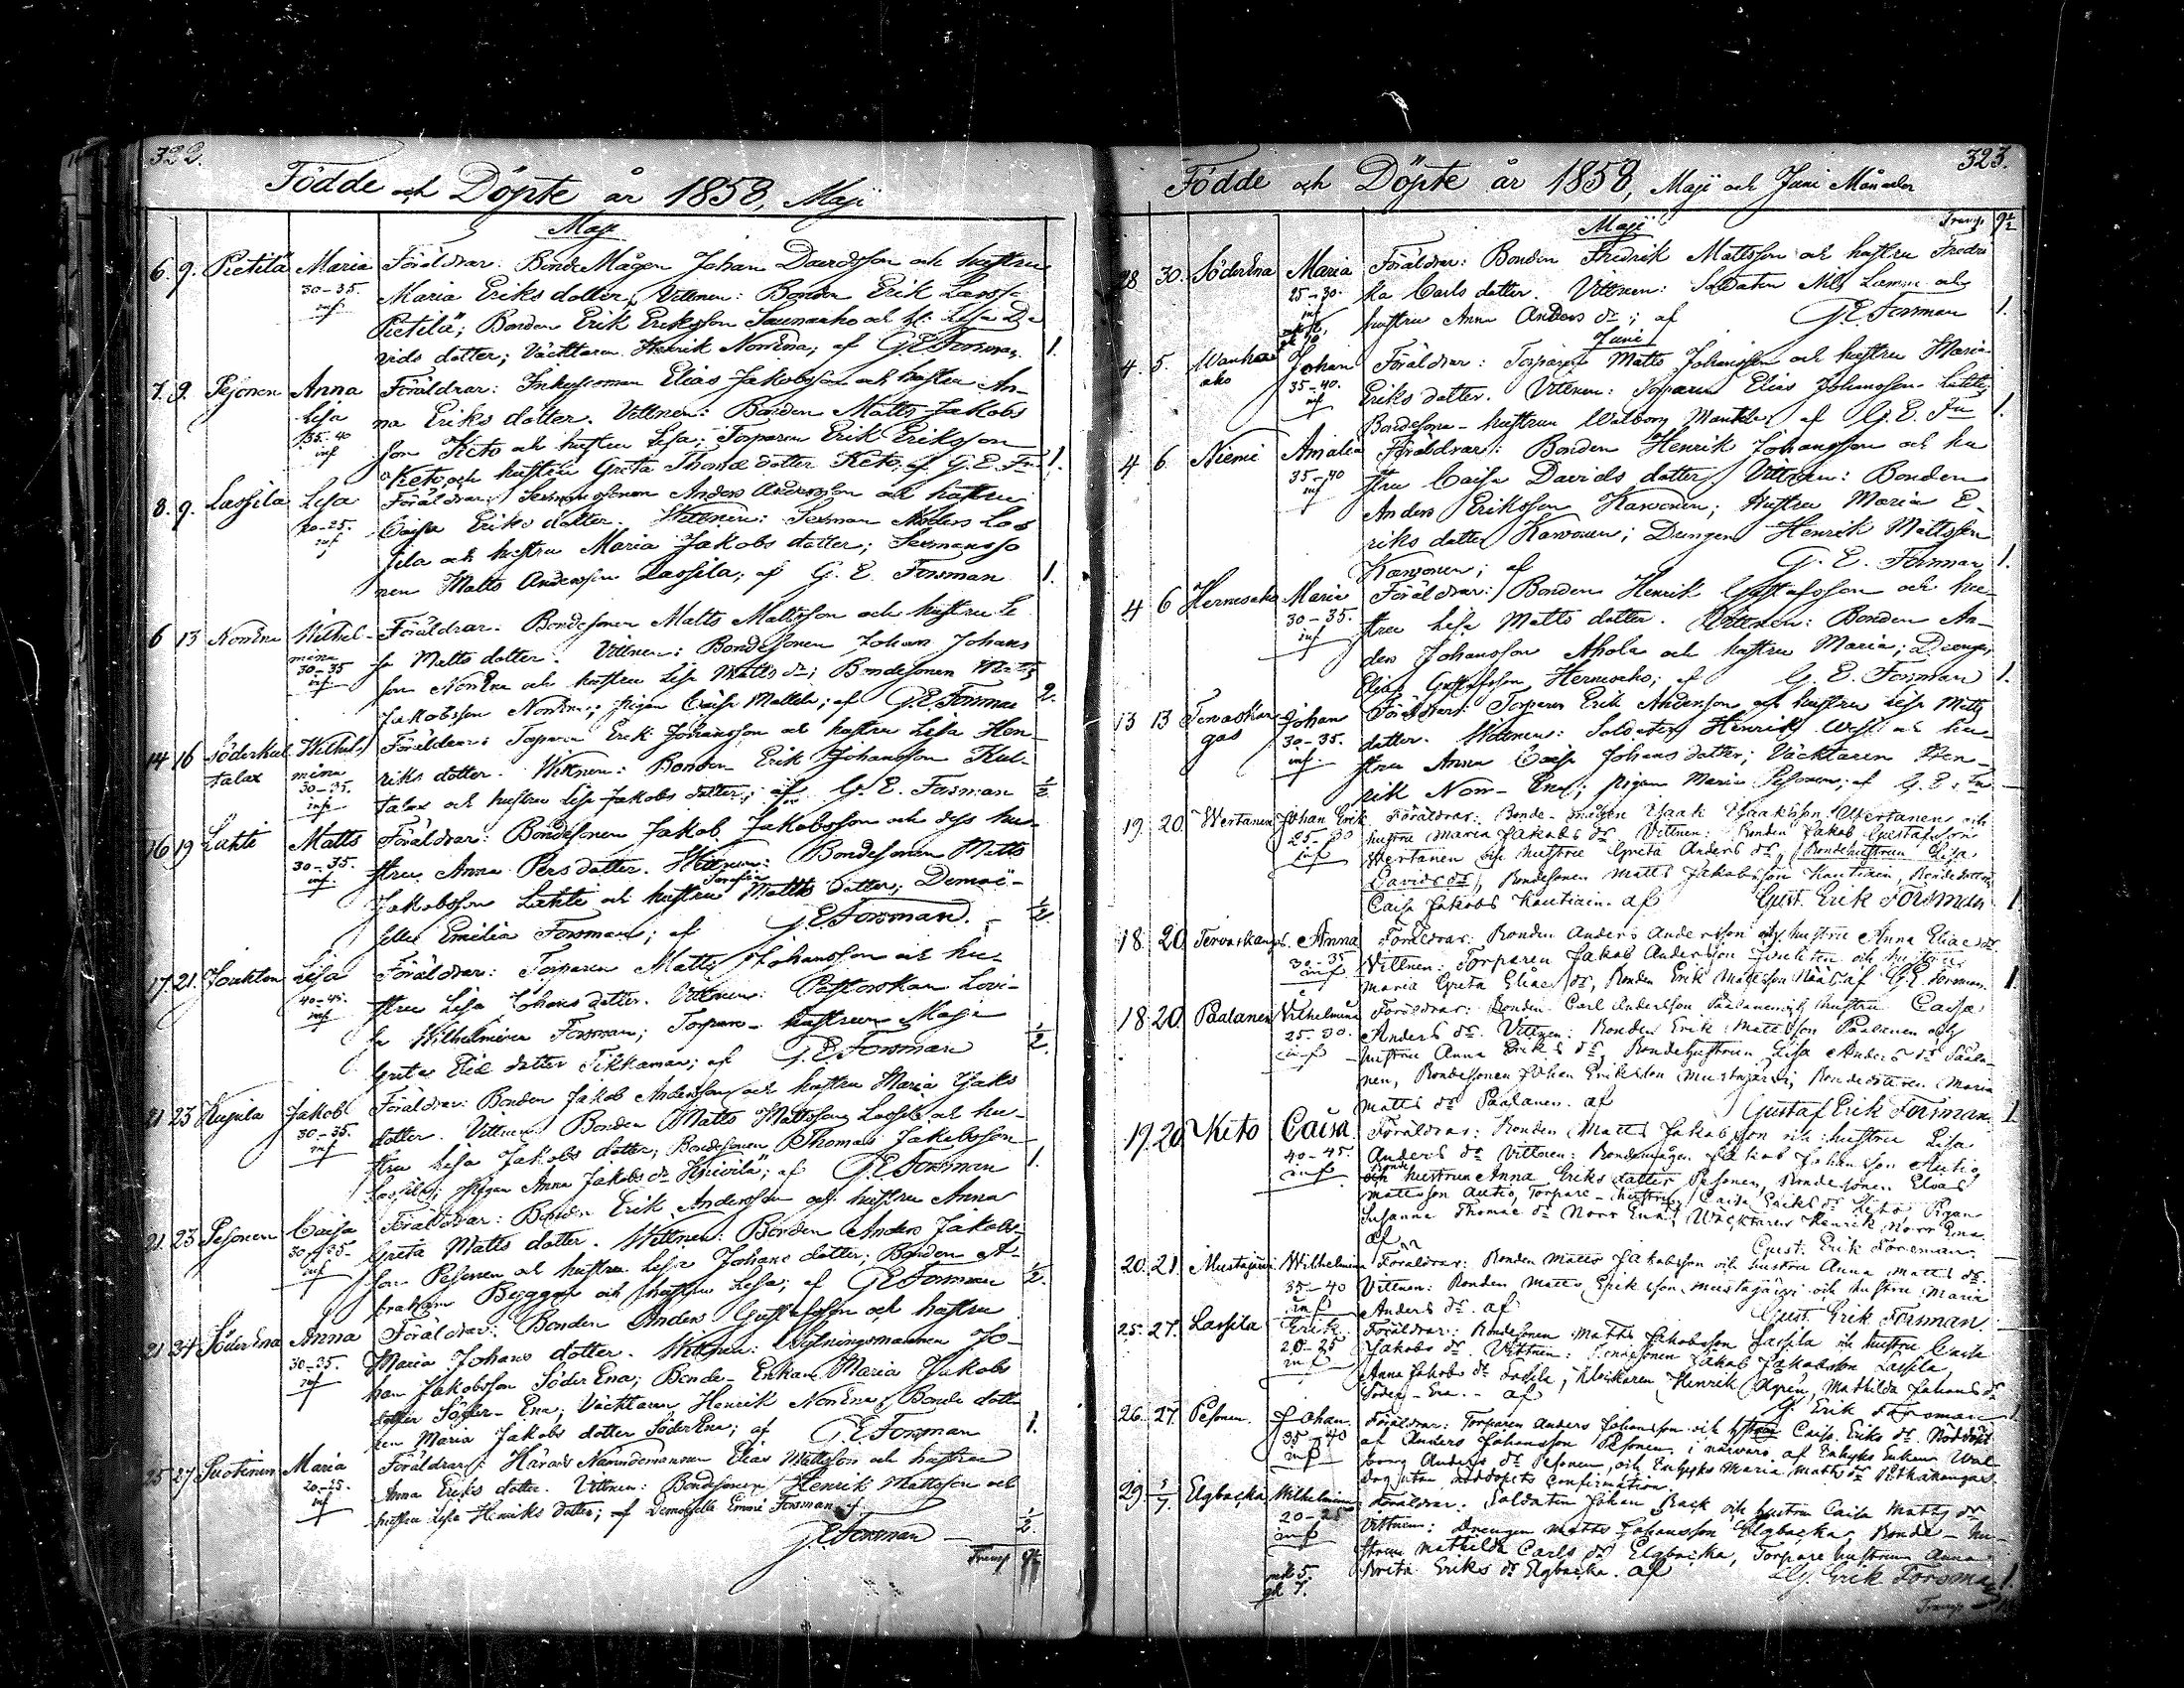 322.
Födde och Döpte år 1858, Maji
Maji
6. 9. Pietilä Maria Föräldrar: BondeMågen Johan Davidsson och hustru
30-35. Maria Eriks dotter. Vittnen: Bonden Erik
inf Pietilä; Bonden Erik Eriksson Saunaaho och h: Lisa Da
vids dotter; Väcktaren Henrik NorrEna; af G.E. Forsman. 1.
7. 9. Pesonen Anna Föräldrar: Inhysesman Elias Jakobsson och hustru An-
Lisa na Eriks dotter. Vittnen: Bonden Matts Jakobs
35-40 son Keto och hustru Lisa; Torparen Erik Eriksson
inf Keto, och hustru Greta Thomæ dotter Keto, af G. E. Fn 1.
8. 9. Lassila Lisa Föräldrar: Sexmanssonen Anders Andersson och hustru
20-25. Caisa Eriks dotter. Wittnen: Sexman Anders Las
inf sila och hustru Maria Jakobs dotter; Sexmansso
nen Matts Andersson Lassila; af G. E. Forsman 1.
6 13 NorrEna Wilhel- Föräldrar. Bondesonen Matts Mattsson och hustru Li
mina sa Matts dotter. Vittnen: Bondesonen Johan Johans
30-35 son NorrEna och hustru Lisa Matts dr; Bondesonen Matts
inf Jakobsson NorrEna; pigan Caisa; af G.E. Forsman 2.
14 16 Söderkul Wilhel Föräldrar: Torparen Erik Johansson och hustru Lisa Hen-
talax mina riks dotter. Wittnen: Bonden Erik Johansson Kul-
30-35. talax och hustru Lisa Jakobs dotter; af G. E. Forsman 1/2
inf
16 19 Lahti Matts Föräldrar: Bondesonen Jakob Jakobsson och dess hu-
30-35. stru Anna Pers dotter. Wittnen: Bondesonen Matts
inf Jakobsson Lahti och hustru Sarafia Matts dotter; Demoi-
selle Emilia Forsman; af G.E. Forsman. 1/2.
17. 21. Lisa Föräldrar: Torparen Matts Johansson och hu-
40-45. stru Lisa Johans dotter. Vittnen: Pastorskan Lovi-
inf sa Wilhelmina Forsman; Torpare-hustrun Maja
Greta Eliæ dotter Tikkanen; af G.E Forsman 1/2.
21 23 Kujala Jakob Föräldrar: Bonden Jakob Andersson och hustru Maria
30-35. dotter. Vittnen: Bonden Matts Mattsson Lassila och hu-
inf stru Lisa Jakobs dotter; Bondesonen Thomas Jakobsson
Lassila; Pigan Anna Jakobs dr; af G.E. Forsman 1.
21. 23 Pesonen Caisa Föräldrar: Bonden Erik Andersson och hustru Anna
30-35. Greta Matts dotter. Wittnen: Bonden Anders Jakobs-
inf son Pesonen och hustru Lisa Johans dotter; Bonden A-
braham och hustru Lisa; af G.E Forsman 1/2.
21 24 SöderEna Anna Föräldrar: Bonden Anders Gustafsson och hustru
30-35. Maria Johans dotter. Vittnen: Jo-
inf han Jakobsson SöderEna; Bonde-Enkan Maria Jakobs
dotter Söder-Ena; Väcktaren Henrik NorrEna; Bonde dotte
ren Maria Jakobs dotter SöderEna; af G. E. Forsman 1.
25 27 Maria Föräldrar: Härads Nämndemannen Elias Mattsson och hustru
20-25. Anna Eriks dotter. Vittnen: Bondesonen Henrik Mattsson och
inf hustru Lisa Henriks dotter; Demoiselle Emma Forsman af
G.E. Forsman 1/2.
Transp 9 1/2
323.
Födde och Döpte år 1858, Maji och Juni Månader
Transp 9 1/2
Maji
28 30. SöderEna Maria Föräldrar: Bonden Fredrik Mattsson och hustru Fredri
25-30. ka Carls dotter. Vittnen: Soldaten Nils och
inf hustru Anna Anders dr; af G.E. Forsman 1.
Juni
4 5. Wanha Johan Föräldrar: Torparen Matts Johansson och hustru Maria
aho 35-40. Eriks dotter. Vittnen: Torparen Elias Johansson
inf Bondesons-hustrun Walborg; af G. E. Fn 1.
4 6 Niemi Amalia Föräldrar: Bonden Henrik Johansson och hu
35-40 stru Caisa Davids dotter. Vittnen: Bonden
inf Anders Eriksson Karvonen; Hustru Maria E-
riks dotter Karvonen; Drengen Henrik Mattsson
Karvonen; af G. E. Forsman 1.
4 6 Herneaho Maria Föräldrar: Bonden Henrik Gustafsson och hu-
30-35. stru Lisa Matts dotter. Vittnen: Bonden An-
inf ders Johansson Ahola och hustru Maria; Drengen
Elias Gustafsson Herneaho; af G. E. Forsman 1.
13 13 Tervaskan Johan Föräldrar: Torparen Erik Andersson och hustru Lisa Matts
gas 30-35. dotter. Vittnen: Soldaten Henrik och hu-
inf stru Anna Caisa Johans dotter; Väcktaren Hen-
rik Norr-Ena; pigan Maria Pesonen; af G. E. Fn —
19. 20 Wertanen Johan Erik Föräldrar: Bonde-mågen Isaak Isaaksson Wertanen och
25-30 hustru Maria Jakobs dr. Vittnen: Bonden Jakob Gustafsson
inf Wertanen och hustru Greta Anders dr, Bondehustrun Lisa
Davids dr, Bondesonen Matts Jakobsson Kautiain, Bondedottren
Caisa Jakobs Kautiain. af Gust. Erik Forsman 1.
18. 20 Tervaskangas. Anna Föräldrar: Bonden Anders Andersson och hustru Anna Eliae dr.
30-35 Vittnen: Torparen Jakob Andersson och hustru
inf Maria Greta Eliae dr, Bonden Erik Mattsson af G.E. Forsman. 1.
18. 20 Paalanen Vilhelmina Föräldrar: Bonden Carl Andersson Paalanen och hustru Caisa
25-30. Anders dr. Vittnen: Bonden Erik Mattsson Paalanen och
inf hustru Anna Eriks dr, Bondehustrun Lisa Anders dr Paala-
nen, Bondesonen Johan Eriksson Mustajärvi, Bondedottren Maria
Matts dr Paalanen. af Gustaf Erik Forsman. 1.
19. 20 Keto Caisa Föräldrar: Bonden Matts Jakobsson och hustru Lisa
40-45. Anders dr Vittnen: Bondemågen Jakob Johansson Autio
inf och hustrun Anna Eriks dotter Pesonen, Bondesonen Elias
Mattsson Autio, Torpare-hustrun Caisa Eriks dr Keto, Pigan
Susanna Thomae dr Norr Ena, Wäcktaren Henrik Norr Ena.
af Gust. Erik Forsman. —
20. 21. Mustajärvi Wilhelmina Föräldrar: Bonden Matts Jakobsson och hustru Anna Matts dr.
35-40 Vittnen: Bonden Matts Eriksson Mustajärvi och hustru Maria
inf Anders dr. af Gust. Erik Forsman. —
25. 27. Lassila Erik Föräldrar: Bondesonen Matts Jakobsson Lassila och hustru Caisa
20-25 Jakobs dr. Vittnen: Bondesonen Jakob Jakobsson Lassila,
inf Anna Jakobs dr Lassila, Klockaren Henrik, Mathilda Johans dr
Söder-Ena.. af G. Erik Forsman 1
26. 27. Pesonen. Johan. Föräldrar: Torparen Anders Johansson och hustru Caisa Eriks dr. Nöddöpt
35-40 af Anders Johansson Pesonen i närvaro af Inhyses Enkan Wal-
inf borg Anders dr Pesonen, och Inhyses Maria Matts dr
nöddopets confirmation.
29. 1/7. Elgbacka Wilhelmina Föräldrar: Soldaten Johan Back och hustru Caisa Matts dr
20-25 Vittnen: Drengen Matts Johansson Elgbacka, Bonde-hu-
inf strun Mathilda Carls dr Elgbacka, Torpare hustrun Anna
mk 5. Brita Eriks dr Elgbacka. af G. Erik Forsman 1.
qk 7.
Transp